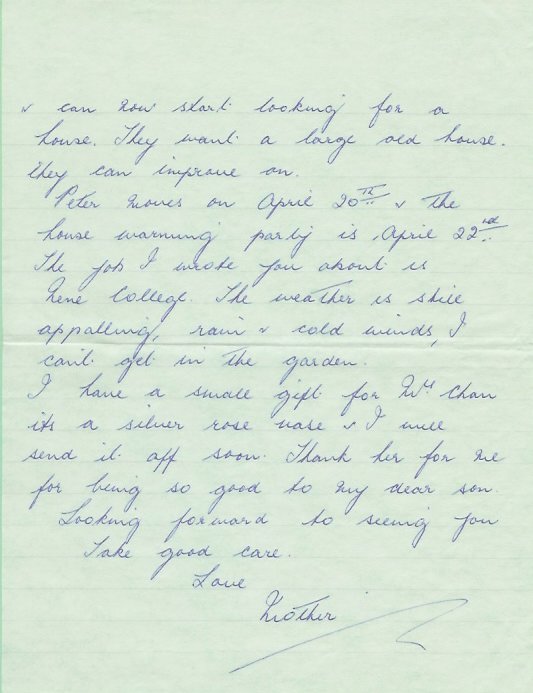 & can now start looking for a
house. They want a large old house.
they can improve on.
Peter moves on April 20TH & the
house warming party is April 22nd.
The job I wrote you about is
Nene College. The weather is still
appalling, rain & cold winds, I
can't get in the garden.
I have a small gift for Mrs Chan
its a silver rose vase & I will
send it off soon. Thank her for me
for being so good to my dear son.
Looking forward to seeing you
Take good care.
Love
Mother